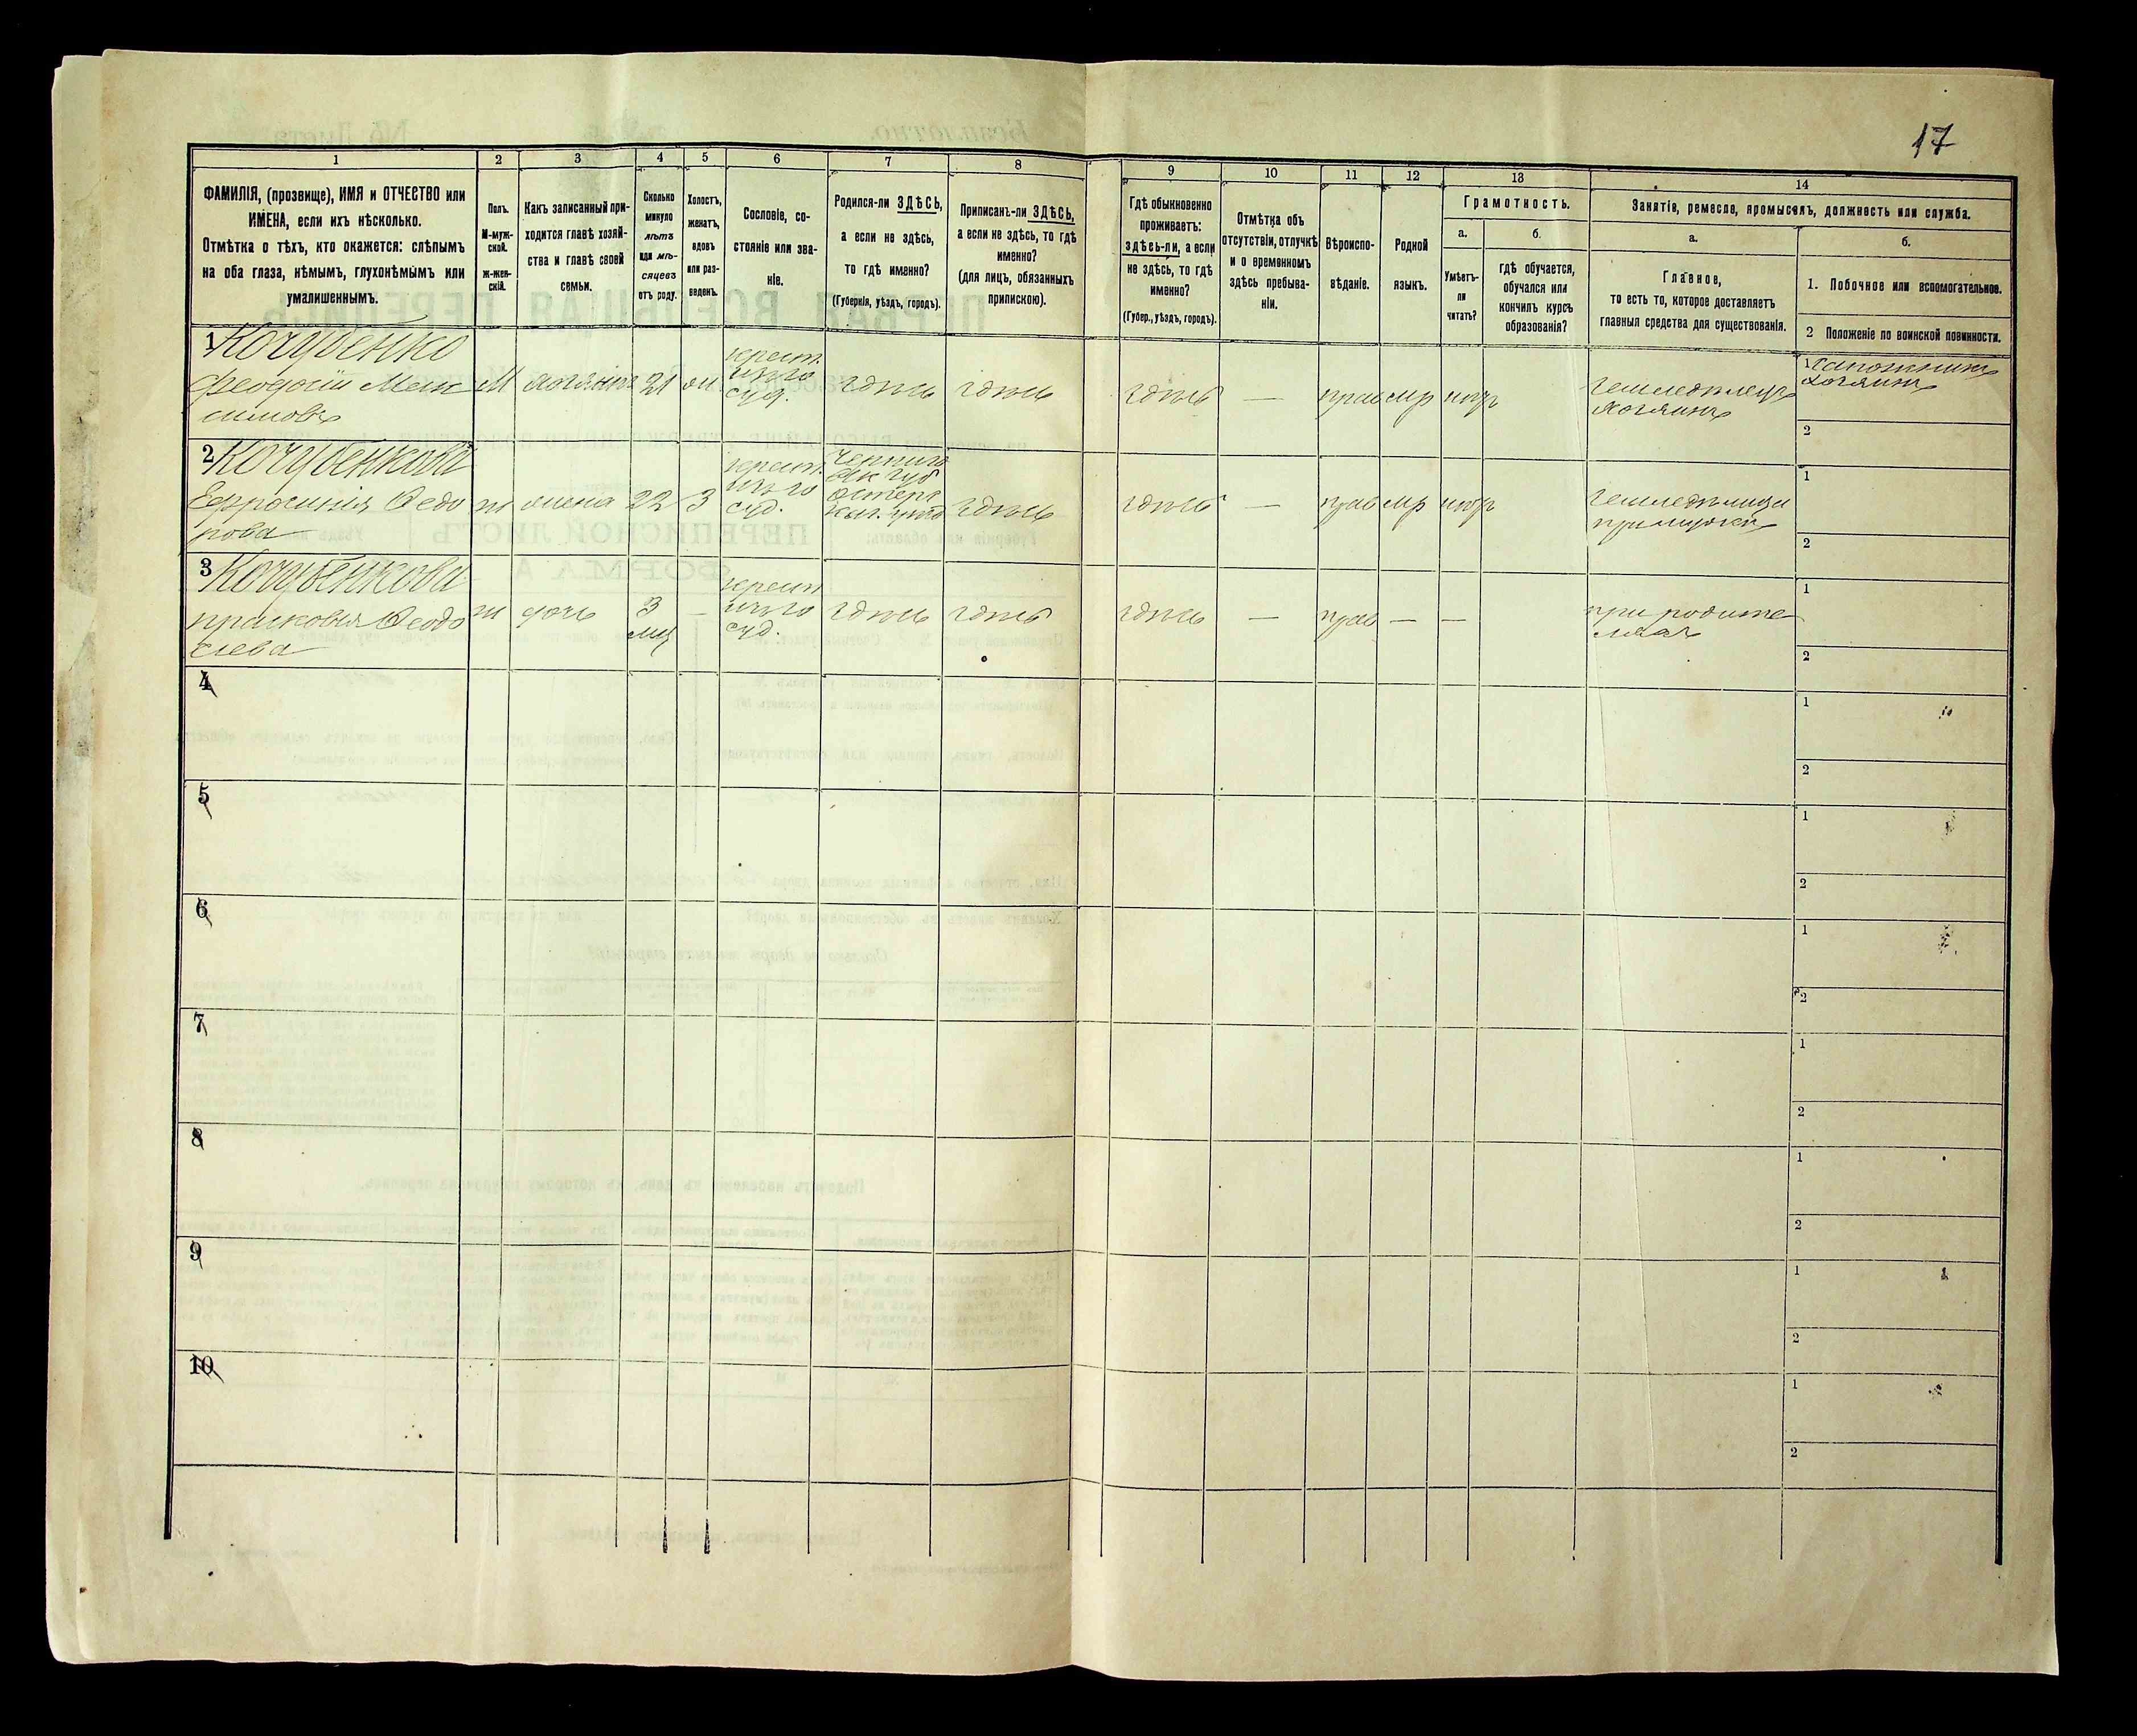 17
1 2 3 4 5 6 7 8 9 10 11 12 13 14
ФАМИЛІЯ, (прозвище), ИМЯ и ОТЧЕСТВО или
ИМЕНА, если ихъ нѣсколько.
Отмѣтка о тѣхъ, кто окажется: слѣпымъ
на оба глаза, нѣмымъ, глухонѣмымъ или
умалишеннымъ.
Полъ.
М-муж-
ской.
ж-жен-
скій.
Какъ записанный при-
ходится главѣ хозяй-
ства и главѣ своей
семьи.
Сколько
минуло
лѣтъ
или мѣ-
сяцевъ
отъ роду.
Холостъ,
женатъ,
вдовъ
или раз-
веденъ.
Сословіе, со-
стояніе или зва-
ніе.
Родился-ли ЗДѢСЬ,
а если не здѣсь,
то гдѣ именно?
(Губернія, уѣздъ, городъ).
Приписанъ-ли ЗДѢСЬ,
а если не здѣсь, то гдѣ
именно?
(для лицъ, обязанныхъ
припискою).
Гдѣ обыкновенно
проживаетъ:
здѣсь-ли, а если
не здѣсь, то гдѣ
именно?
(Губер., уѣздъ, городъ).
Отмѣтка объ
отсутствіи, отлучкѣ
и о временномъ
здѣсь пребыва-
ніи.
Вѣроиспо-
вѣданіе.
Родной
языкъ.
Грамотность.
а.
Умѣетъ-
ли
читать?
б.
гдѣ обучается,
обучался или
кончилъ курсъ
образованія?
Занятіе, ремесло, промыселъ, должность или служба.
а.
Главное,
то есть то, которое доставляетъ
главныя средства для существованія.
б.
1. Побочное или вспомогательное.
2 Положеніе по воинской повинности.
1 Кочубенко
Феодосій Мак
симовъ
М хозяинъ 21 ж
крест.
суд.
здѣсь здѣсь здѣсь — прав мр нѣт
Земледѣлецъ
хозяинъ
1 Сапожникъ
хозяинъ
2
2 Кочубенкова
Ефросинія Федо
рова
ж жена 22 З
крест.
суд.
Черниго
ск губ
Остерс
каг. уѣзд
здѣсь здѣсь — прав мр нѣт
Земледѣлица
при мужѣ
1
2
3 Кочубенкова
прасковья Феодо
сіева
ж дочь 3
мц
—
крест
суд.
здѣсь здѣсь здѣсь — прав — —
при родите
ляхъ
1
2
4
1
2
5
1
2
6
1
2
7
1
2
8
1
2
9
1
2
10
1
2